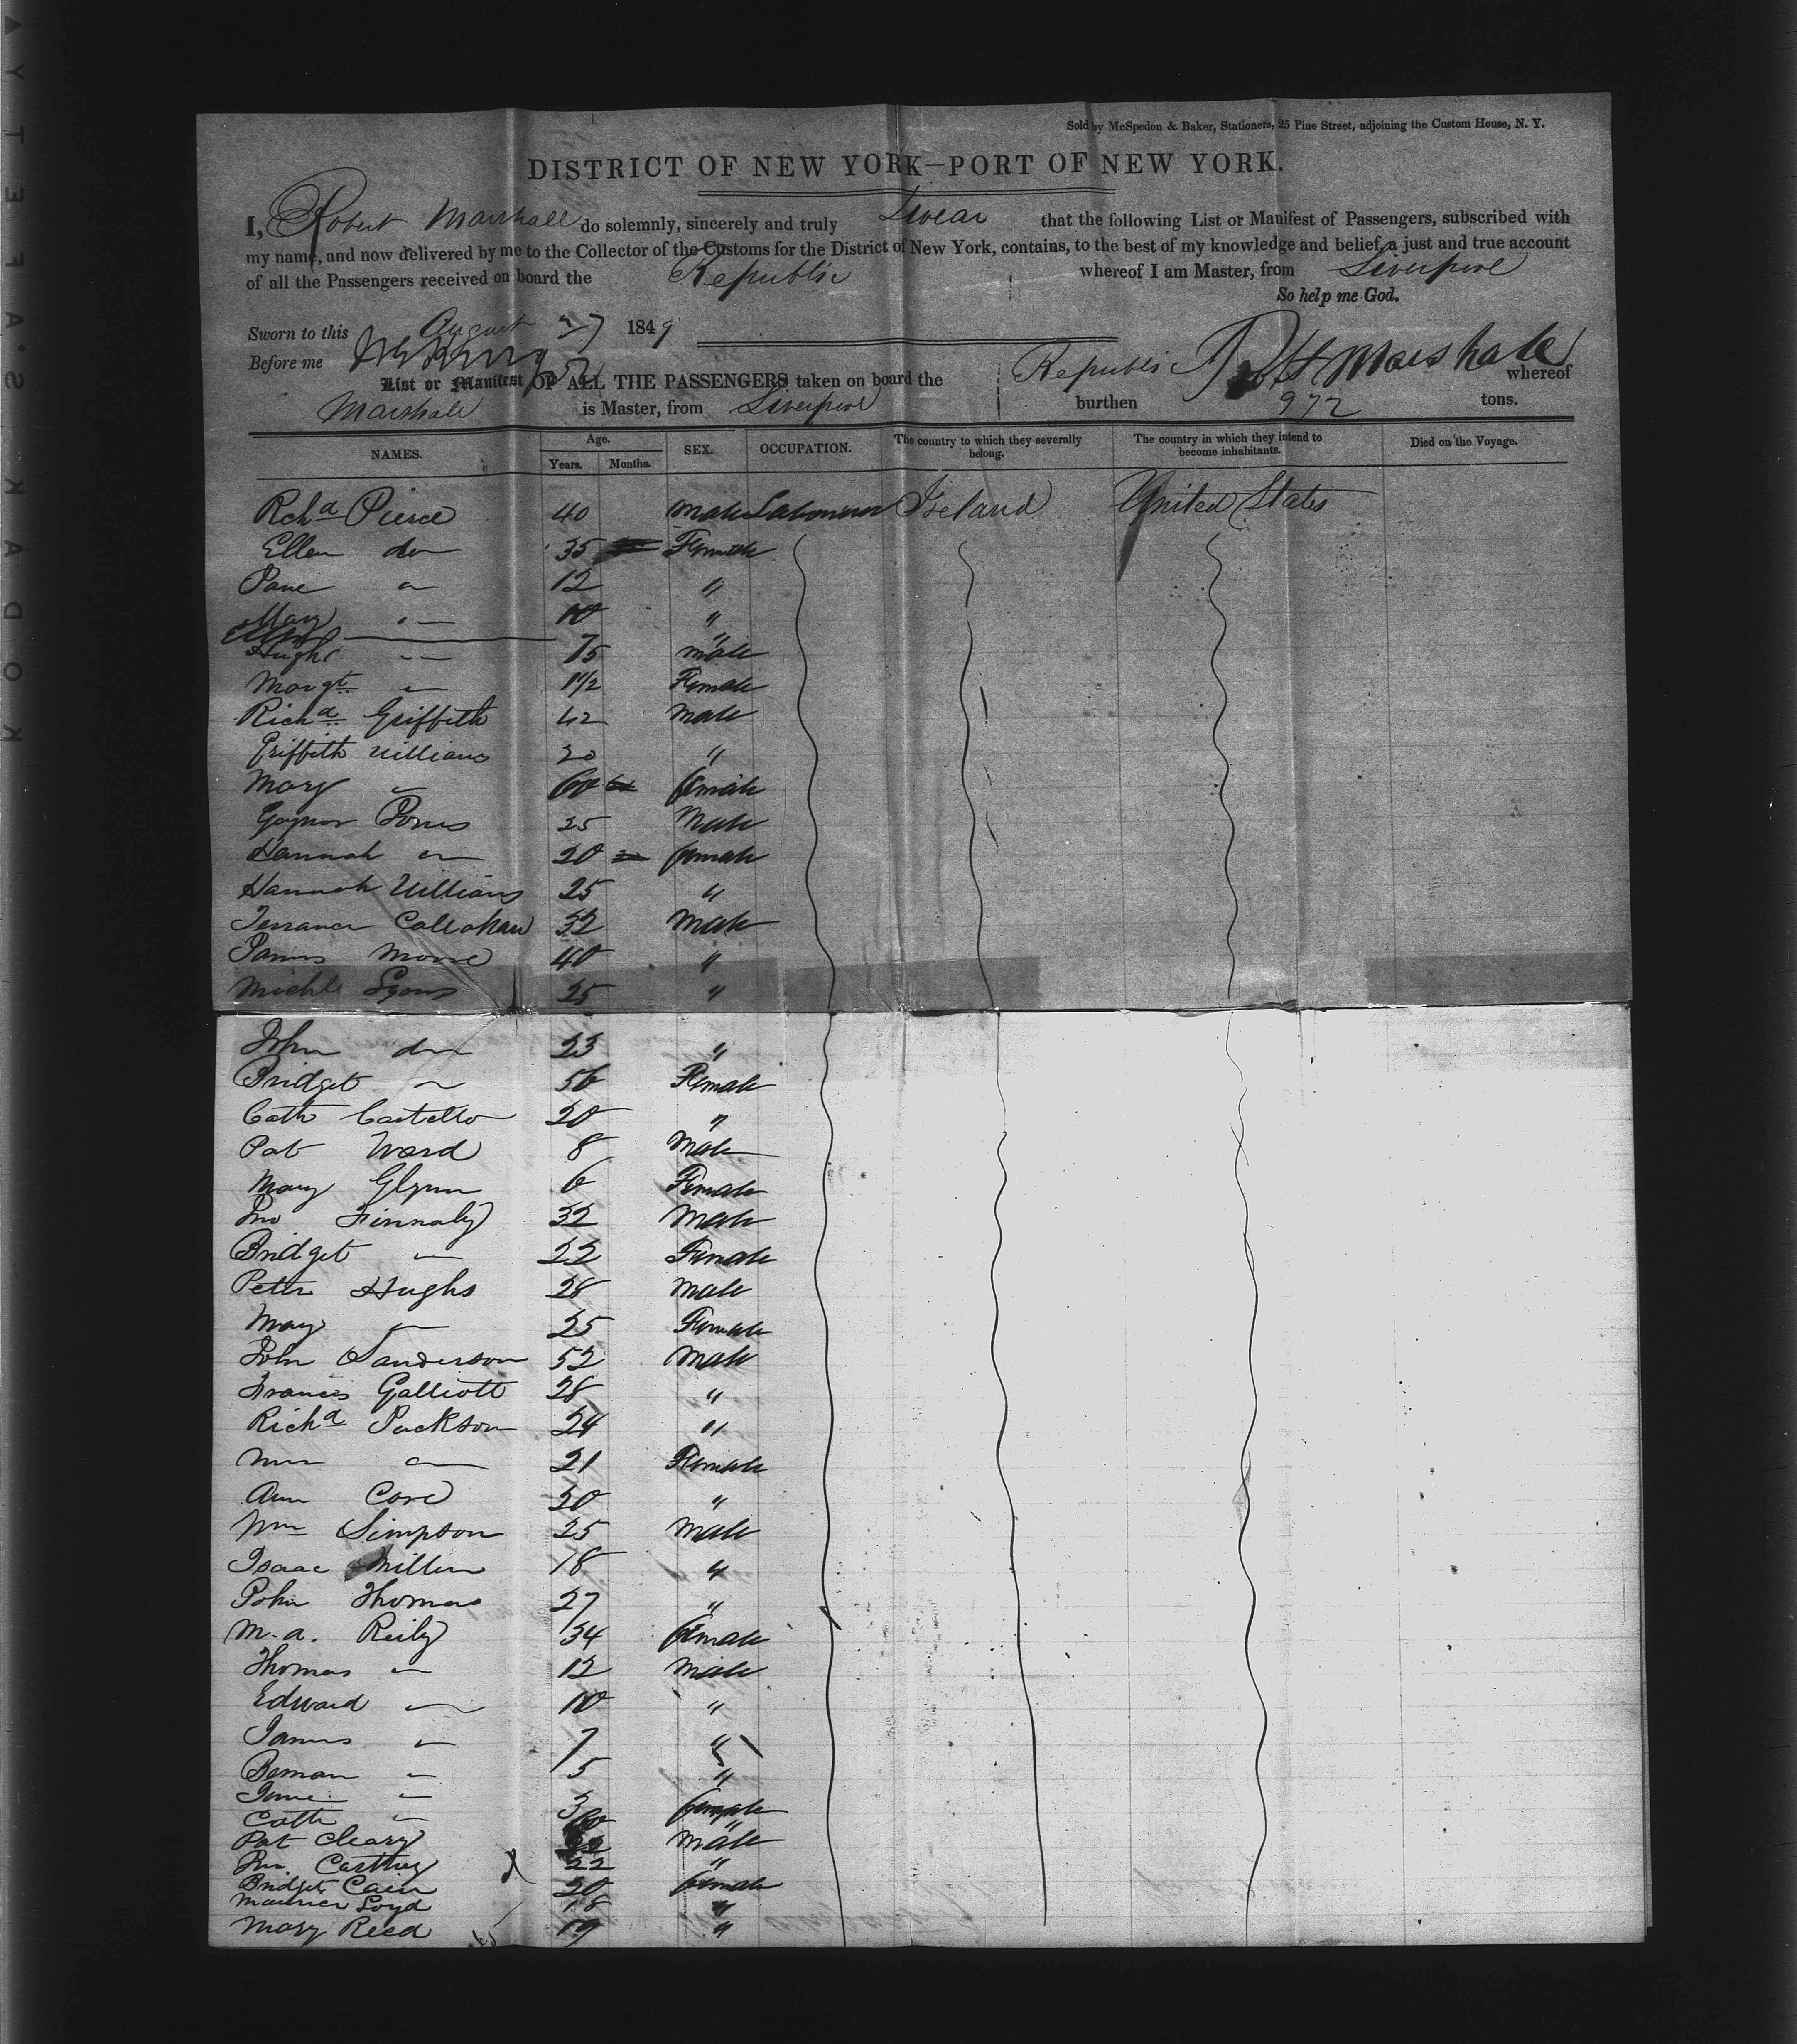 Sold by McSpedon & Baker, Stationers, 25 Pine Street, adjoining the Custom House, N. Y.
DISTRICT OF NEW YORK—PORT OF NEW YORK.
I, Robert Marshall do solemnly, sincerely and truly Swear that the following List or Manifest of Passengers, subscribed with
my name, and now delivered by me to the Collector of the Customs for the District of New York, contains, to the best of my knowledge and belief, a just and true account
of all the Passengers received on board the Republic whereof I am Master, from Liverpool
So help me God.
Sworn to this August 27 1849
Before me
List or Manifest OF ALL THE PASSENGERS taken on board the Republic Marshall whereof
Marshall is Master, from Liverpool burthen 972 tons.
NAMES. Age. Years. Months. SEX. OCCUPATION. The country to which they severally belong. The country in which they intend to become inhabitants. Died on the Voyage.
Rchd Pierce 40 Male Labourer Ireland United States
Ellen do 35 Female
Jane " 12 "
Mary " 10 "
Hugh " 5 male
Margt " 1 1/2 Female
Richd Griffith 42 male
Griffith Williams 20 "
Mary " 60 female
Gaynor Jones 25 Male
Hannah " 20 female
Hannah Williams 25 "
Terrance Callahan 32 Male
James Moore 40 "
Michl Lyons 25 "
John do 23 "
Bridget " 56 Female
Cath Costello 20 "
Pat Ward 8 Male
Mary Glynn 6 Female
Jno Finnaly 32 Male
Bridget " 22 Female
Peter Hughs 28 male
Mary " 25 Female
John Sanderson 52 Male
Francis Galliott 28 "
Richd Jackson 24 "
" 21 Female
Ann 20 "
Wm Simpson 25 male
Isaac Miller 18 "
John Thomas 27 "
M. A. Reily 34 female
Thomas " 12 male
Edward " 10 "
James " 7 "
" 5 "
Jane " 3 female
Cath "
Pat Cleary male
Jno. Carthey 22 "
Bridget Cain 20 female
Maurice Loyd 18 "
Mary Reed 19 "
KODAK SAFETY